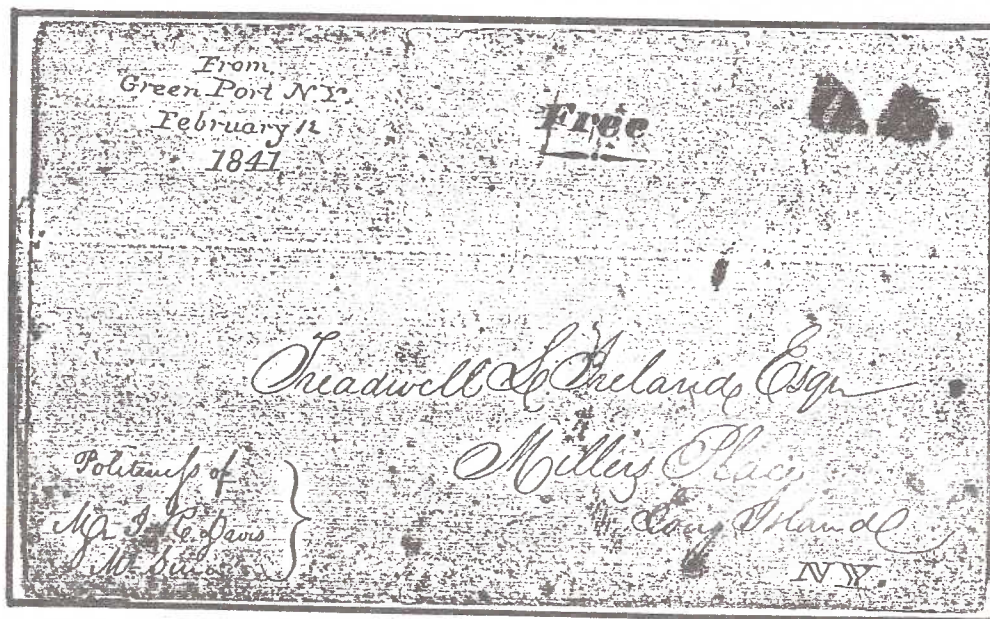 From
Green Port NY.
February 12
1841
Free
Treadwell L. Ireland, Esqr
Millers Place
Long Island
NY.
Politeness of
Mr Davis
Mt